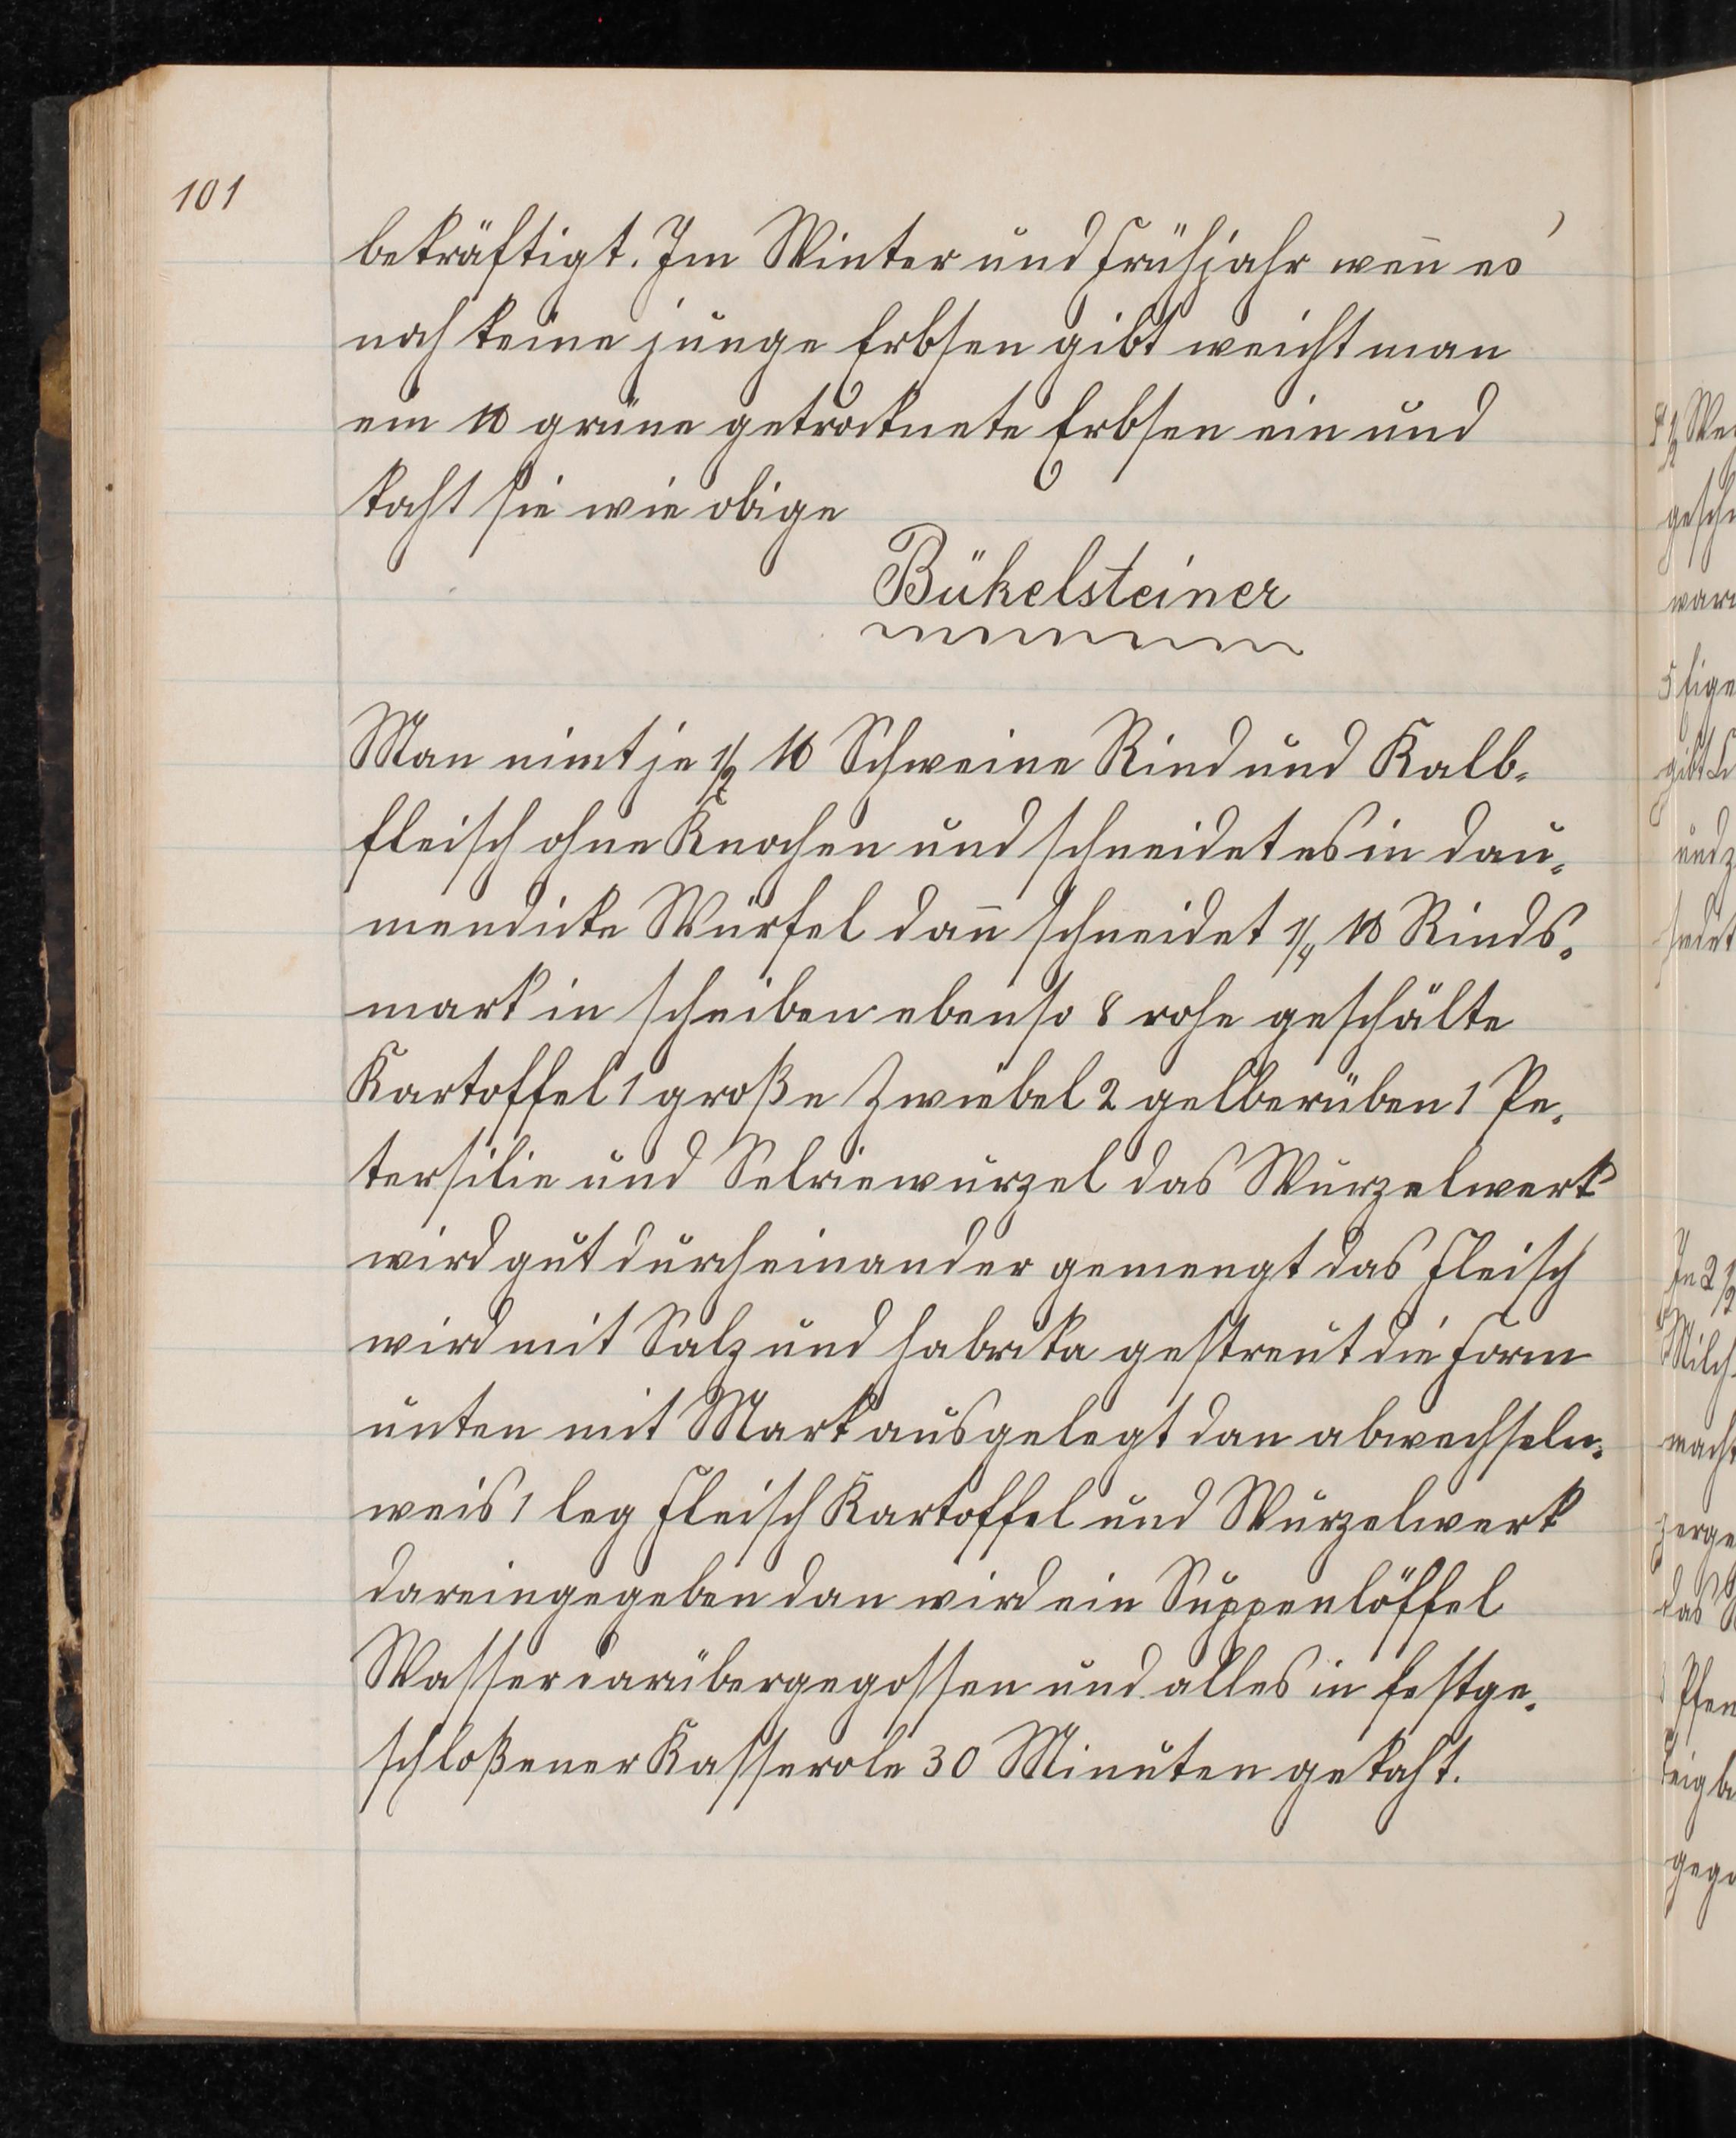 101
bekräftigt. Im Winter und Frühjahr weñ es
noch keine junge Erbsen gibt weicht man
ein ℔ grüne getrocknete Erbsen ein und
kocht sie wie obige
Bükelsteiner
Man nimt je 1/2 ℔ Schweine Rind und Kalb-
fleisch ohne Knochen und schneidet es in dau-
mendicke Würfel dañ schneidet 1/4 ℔ Rinds-
mark in scheiben ebenso 8 rohe geschälte
Kartoffel 1 große Zwiebel 2 gelberüben 1 Pe-
tersilie und Selriewurzel das Wurzelwerk
wird gut durcheinander gemengt das Fleisch
wird mit Salz und habrika gestreut die Form
unten mit Mark ausgelegt dan abwechseln-
weis 1 leg Fleisch Kartoffel und Wurzelwerk
dareingegeben dan wird ein Suppenlöffel
Wasser darübergegossen und alles in festge-
schloßener Kasserole 30 Minuten gekocht.